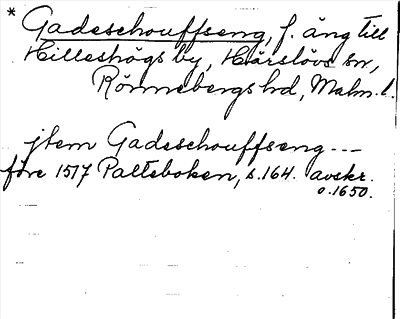 * Gadeschouffseng, f. äng till
Hilleshögs by, Härslövs sn,
Rönnebergs hd, Malm. l.
jtem Gadeschouffseng ---
före 1517 Palteboken, s. 164. avskr.
o. 1650.